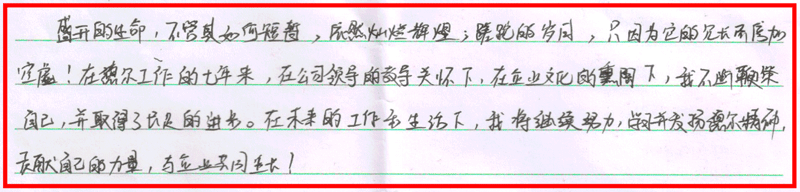 盛开的生命，不管其如何短暂，依然灿烂辉煌；蹉跎的岁月，只因为它的冗长而愈加
空虚！在德尔工作的七年来，在公司领导的教导关怀下，在企业文化的熏陶下，我不断鞭策
自己，并取得了长足的进步。在未来的工作和生活下，我将继续努力，并发扬德尔精神，
贡献自己的力量，与企业共同成长！